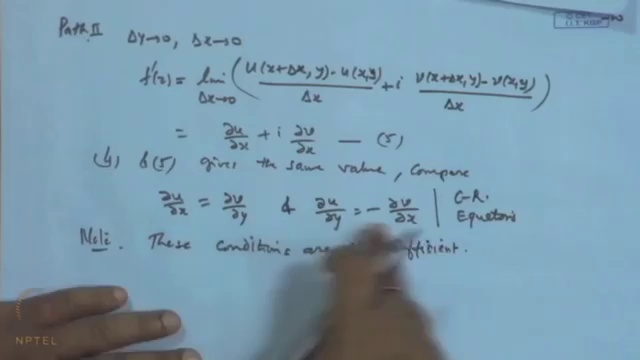 Path II Δy→0, Δx→0
f'(z) = lim Δx→0 ( (u(x+Δx, y) - u(x,y))/Δx + i (v(x+Δx, y) - v(x,y))/Δx )
= ∂u/∂x + i ∂v/∂x — (5)
(4) & (5) gives the same value, Compare
∂u/∂x = ∂v/∂y & ∂u/∂y = - ∂v/∂x | C-R. Equations
Note: These conditions are
I.I.T. KGP
NPTEL